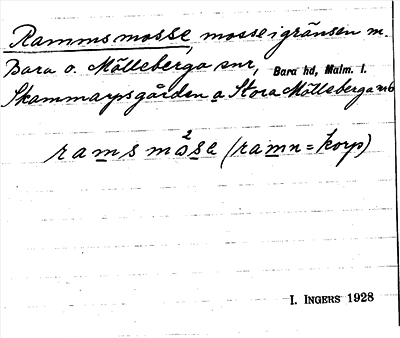 Ramms mosse, mosse i gränsen m.
Bara o. Mölleberga snr, Bara hd, Malm. l.
Skammarpsgården a Stora Mölleberga nr 6
2
rams måsa (ramn = korp)
I. INGERS 1928